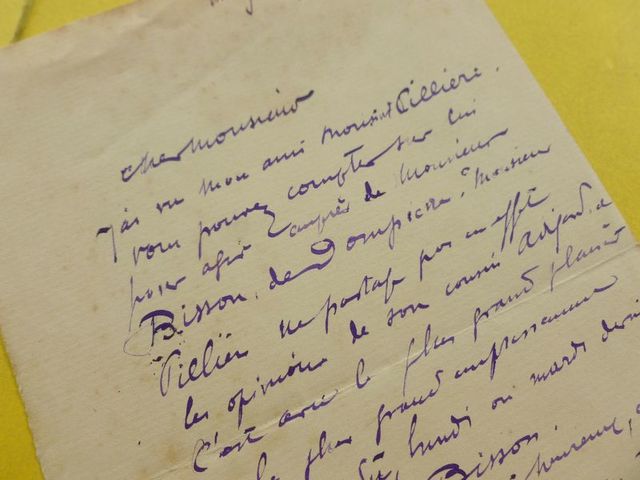 cher monsieur
J'ai vu mon ami monsieur Tillière.
vous pouvez compter sur lui
pour agir auprès de monsieur
Bisson, de Dompierre. Monsieur
Tillière ne partage pas en effet
les opinions de son cousin
C'est avec le plus grand plaisir
le plus grand empressement
lundi ou mardi
Bisson.